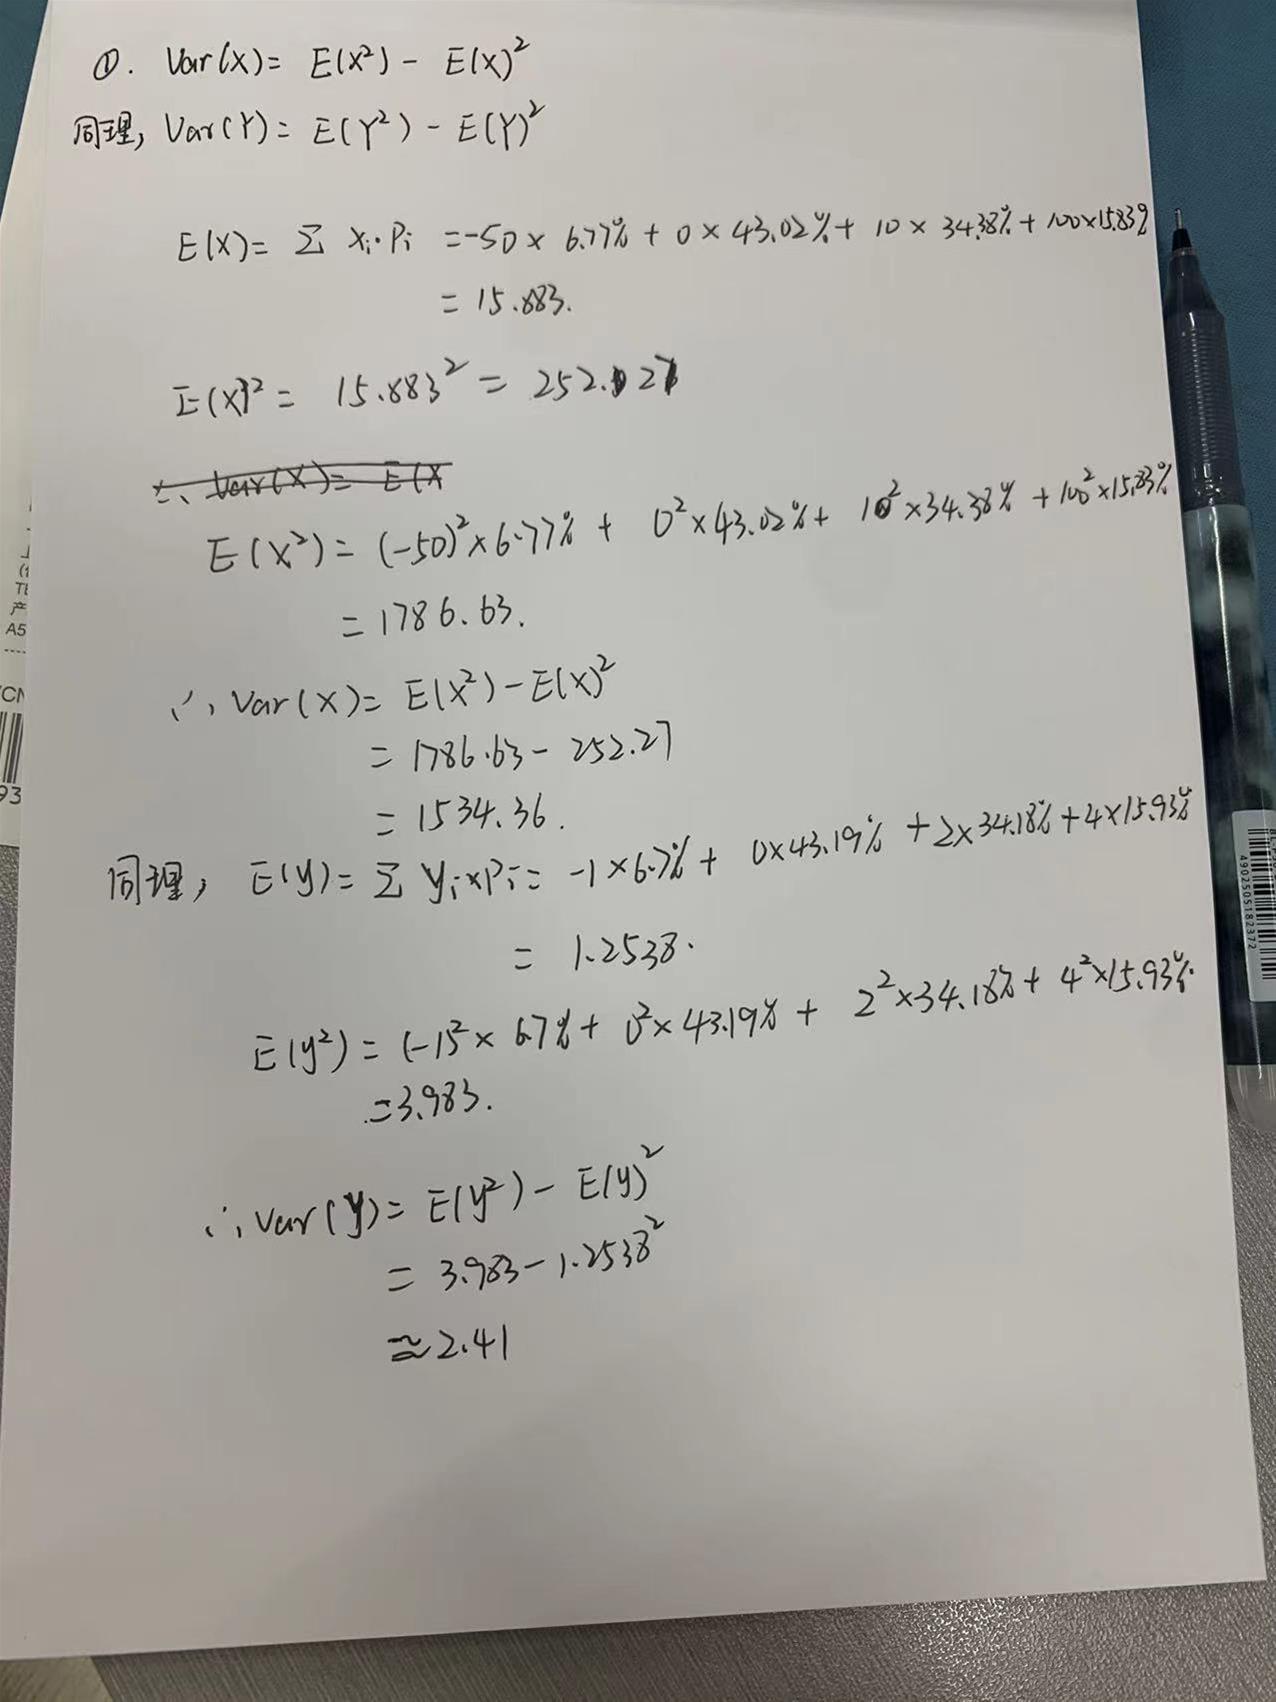 ①. Var(X)= E(X²) - E(X)²
同理, Var(Y)= E(Y²) - E(Y)²
E(X)= Σ Xi·Pi =-50 × 6.77% + 0 × 43.02% + 10 × 34.38% + 100×15.83%
= 15.883.
E(X)² = 15.883² = 252.27
∴ Var(X)= E(X
E(X²) = (-50)²×6.77% + 0²×43.02% + 10²×34.38% + 100²×15.83%
= 1786.63.
∴ Var(X)= E(X²)-E(X)²
= 1786.63 - 252.27
= 1534.36.
同理, E(y)= Σ yi×Pi= -1×6.7% + 0×43.19% + 2×34.18% + 4×15.93%
= 1.2538.
E(y²) = (-1)²× 6.7% + 0²× 43.19% + 2²×34.18% + 4²×15.93%.
=3.983.
∴ Var(y)= E(y²) - E(y)²
= 3.983-1.2538²
≈ 2.41
TE
产
A5
CN
93
4902505182372